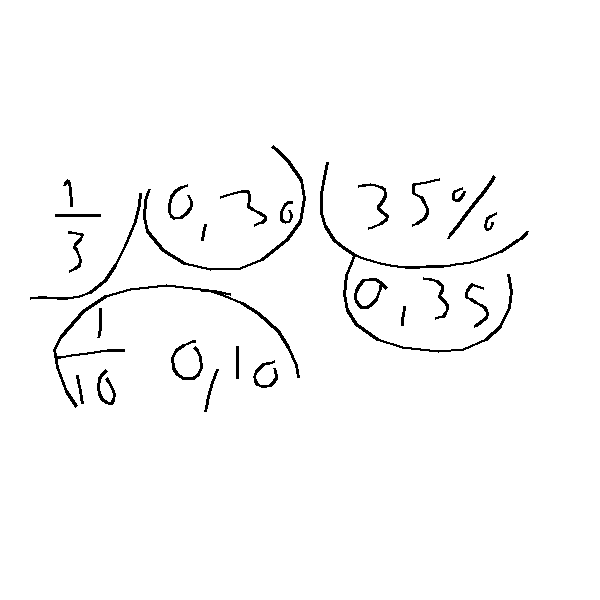 1/3 0,30 35%
0,35
1/10 0,10